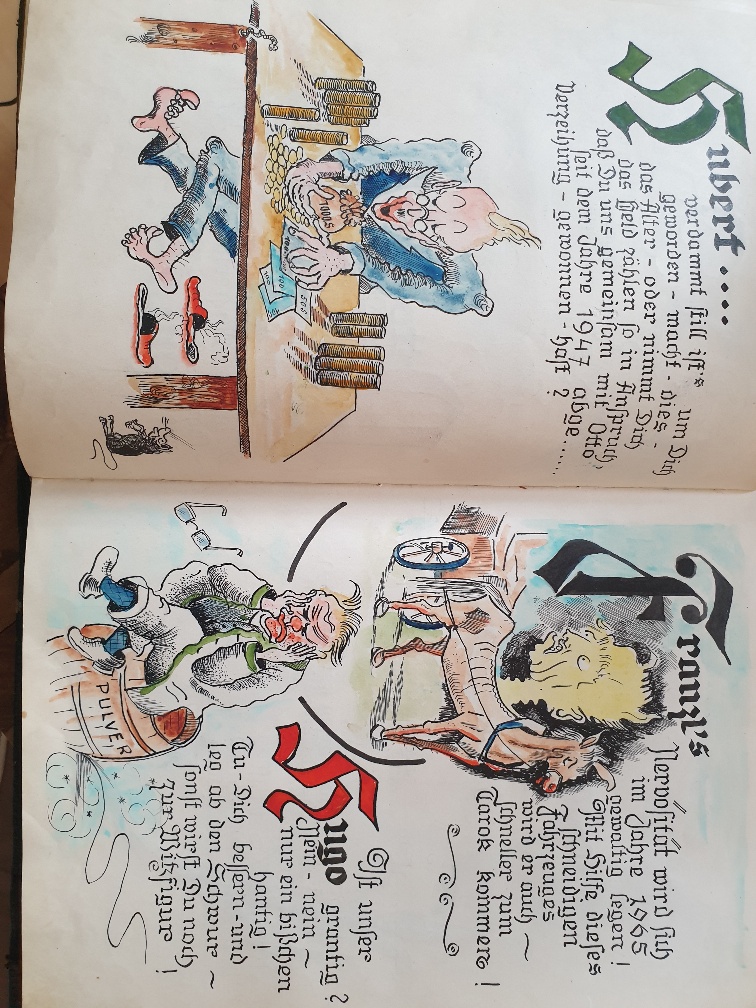 Hubert ....
verdammt still ist's um Dich
geworden - macht - dies -
das Alter - oder nimmt Dich
das Geld zählen so in Anspruch,
daß Du uns gemeinsam mit Otto
seit dem Jahre 1947 abge.....
Verzeihung - gewonnen - hast ?
1000 S
Franzl's
Nervosität wird sich
im Jahre 1965
gewaltig legen !
Mit Hilfe dieses
schneidigen
Fahrzeuges
wird er auch ~
schneller zum
Tarock kommen !
Hugo
Ist unser
grantig ?
Nein - nein ~
nur ein bißchen
hantig !
Tu - Dich bessern - und
leg ab den Schwur ~
sonst wirst Du noch
zur Witzfigur !
PULVER